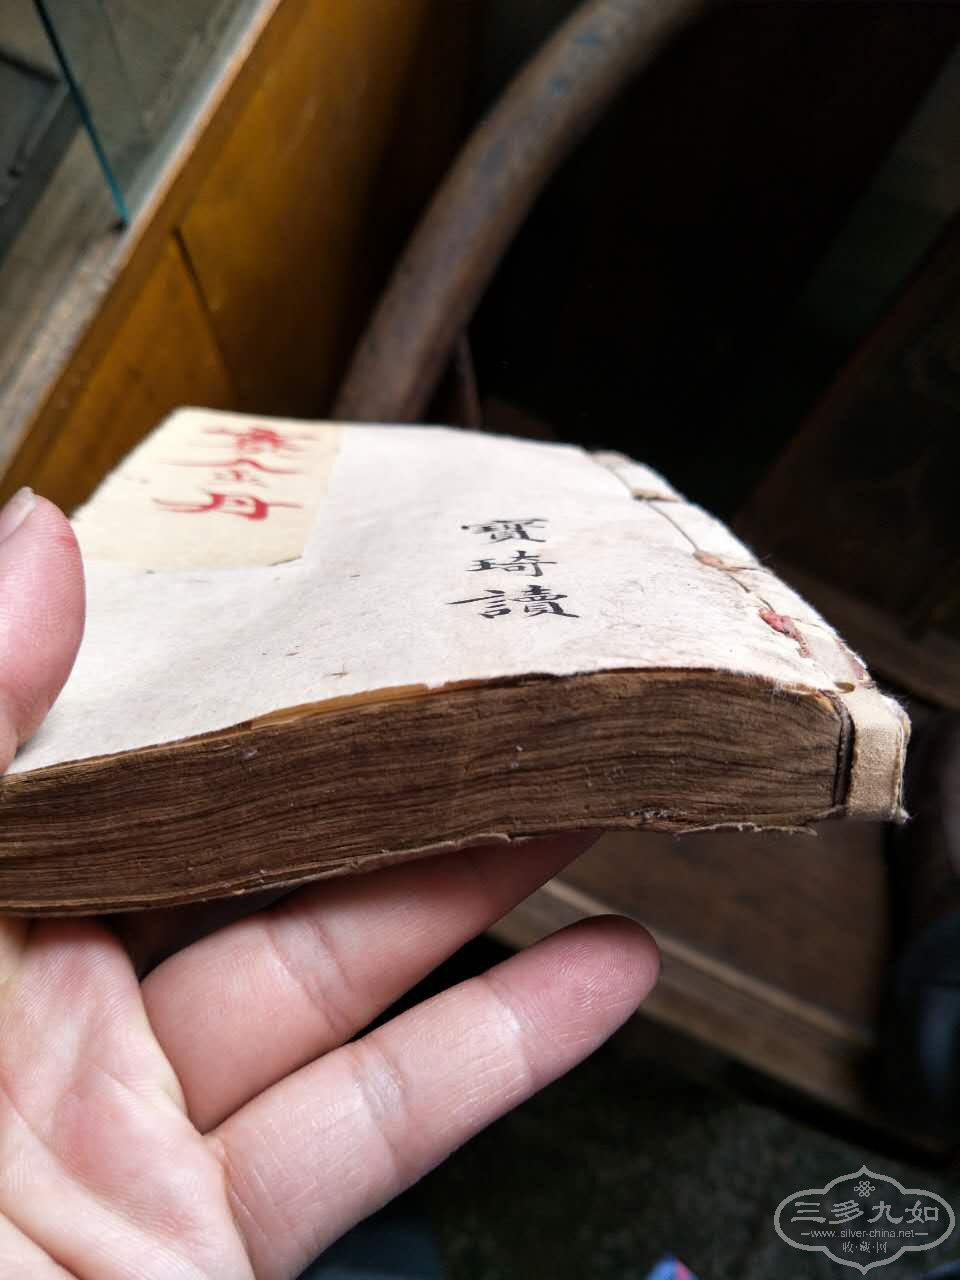 金丹
寶琦讀
三多九如
www.silver-china.net
收·藏·网